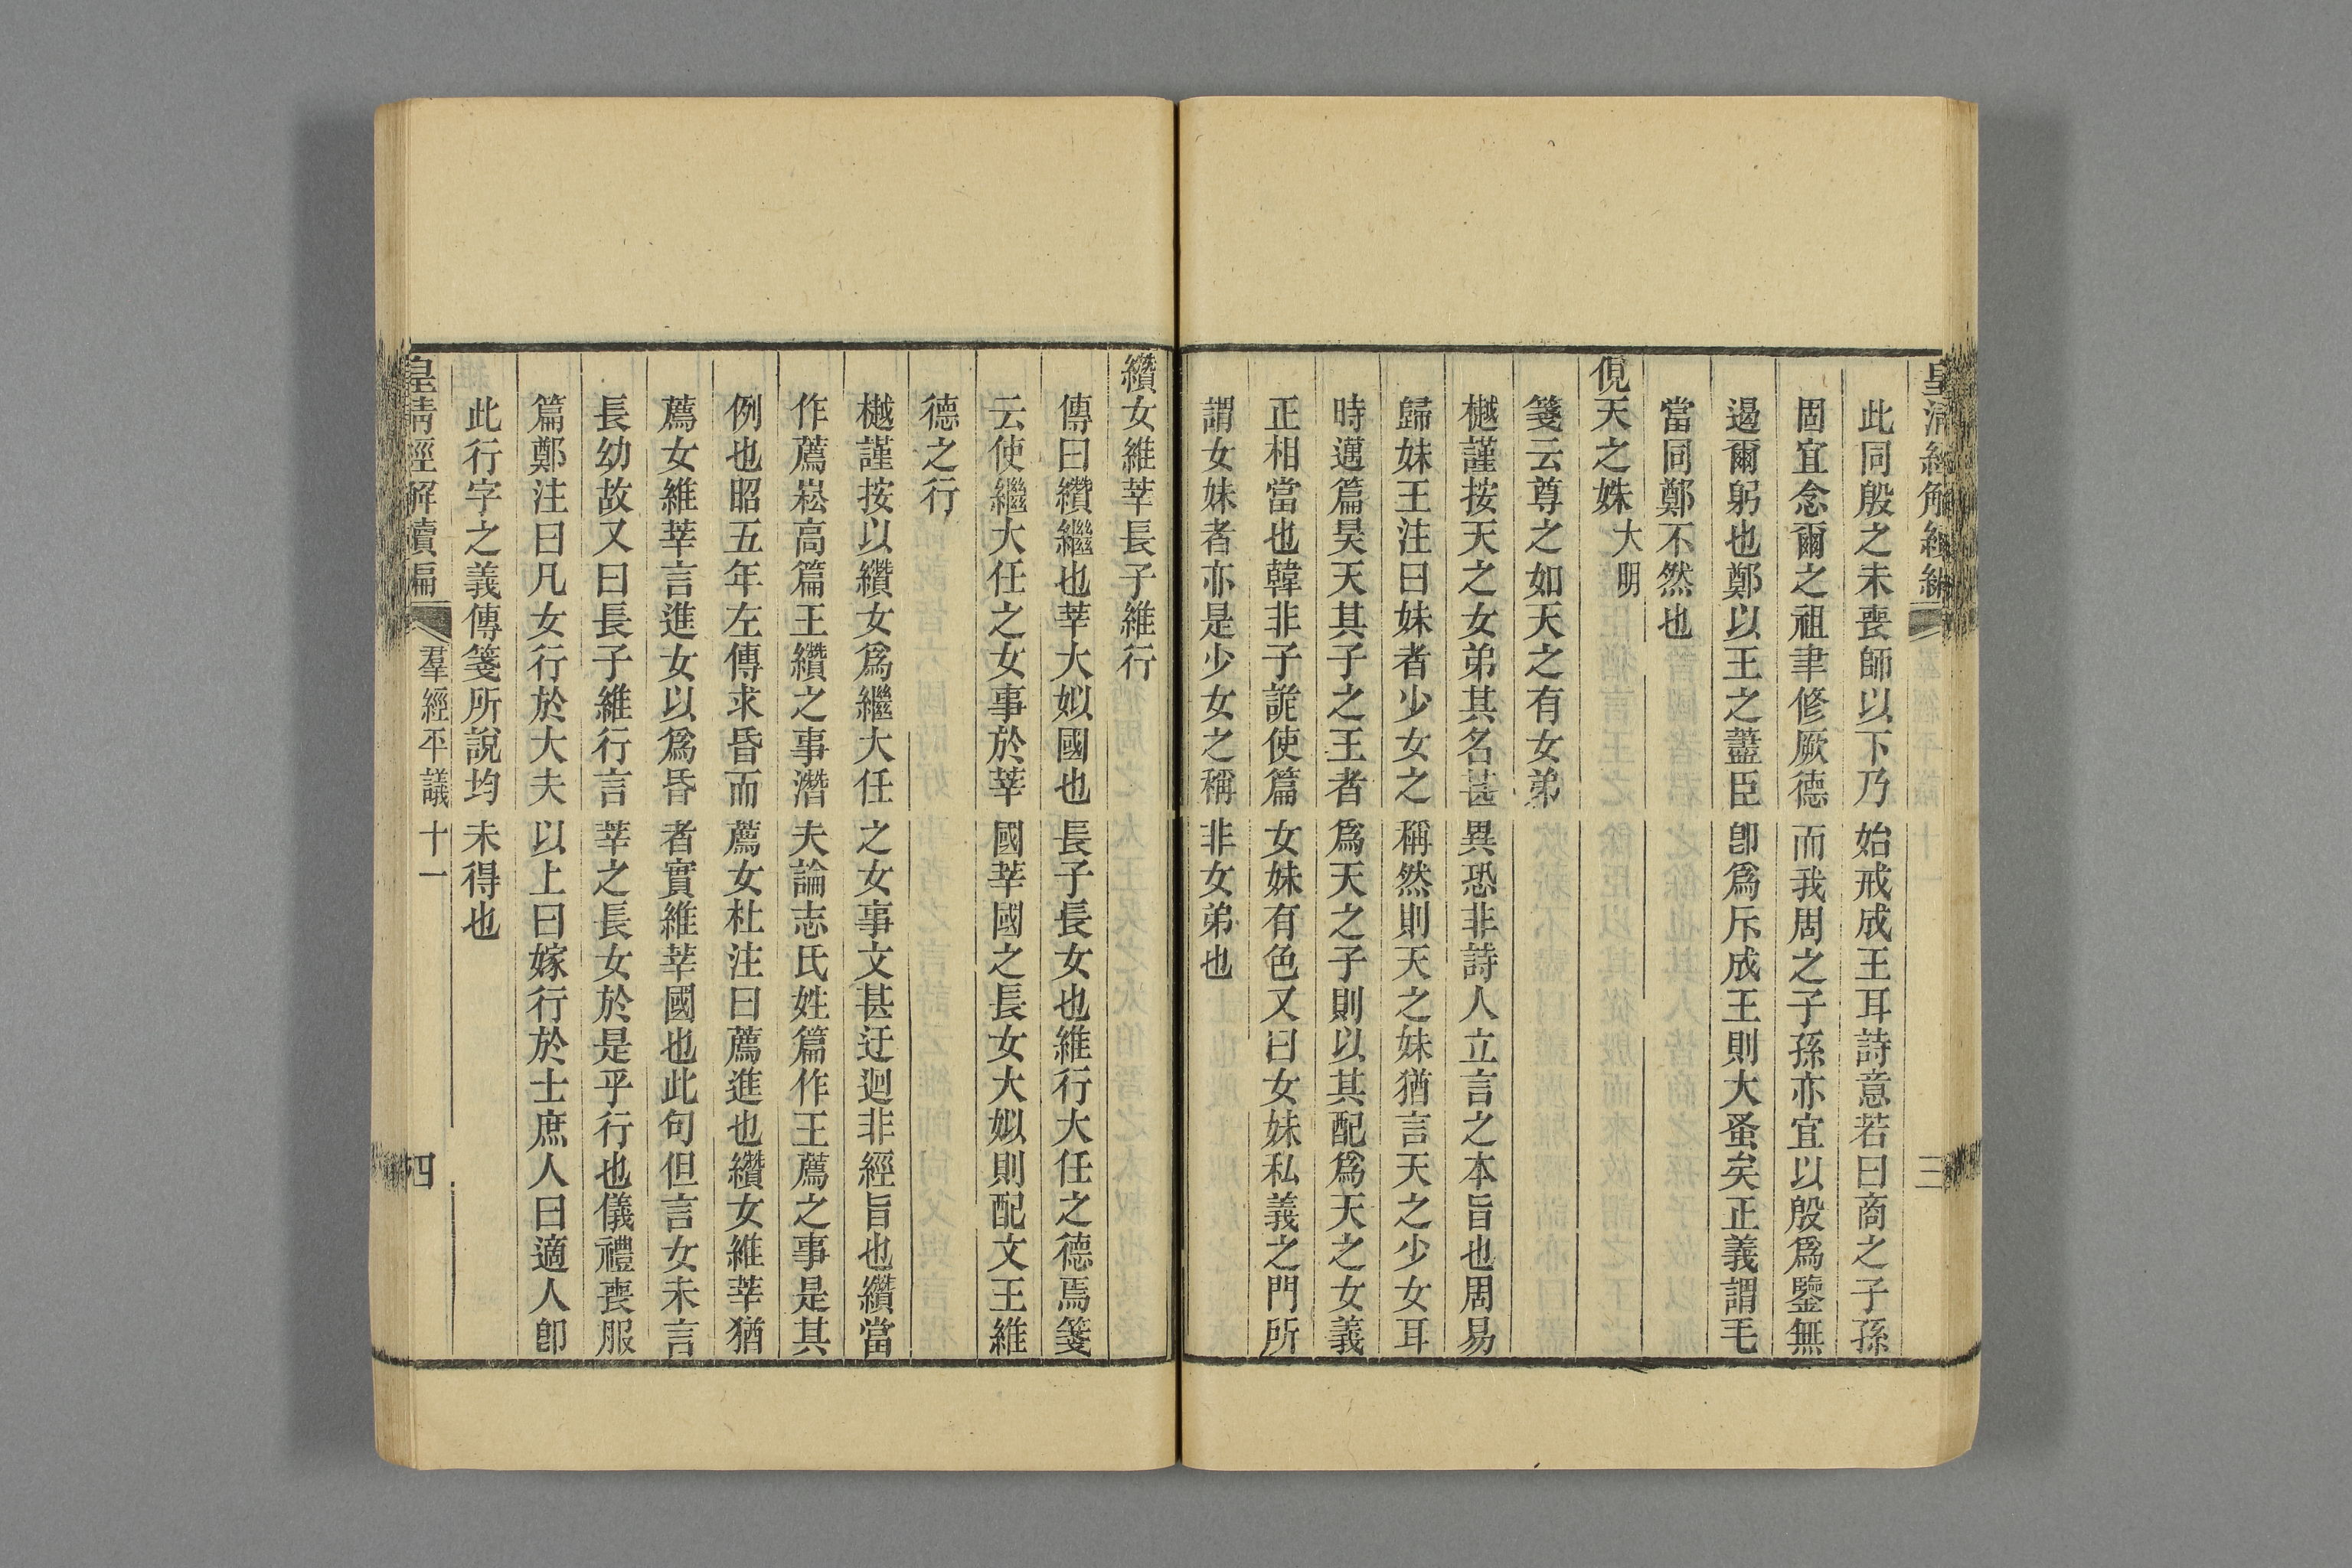 此同殷之未喪師以下乃始戒成王耳詩意若曰商之子孫
固宜念爾之祖聿修厥德而我周之子孫亦宜以殷爲鑒無
遏爾躬也鄭以王之藎臣卽爲斥成王則大蚤矣正義謂毛
當同鄭不然也
俔天之妹 大明
箋云尊之如天之有女弟
樾謹按天之女弟其名甚異恐非詩人立言之本旨也周易
歸妹王注曰妹者少女之稱然則天之妹猶言天之少女耳
時邁篇昊天其子之王者爲天之子則以其配爲天之女義
正相當也韓非子詭使篇女妹有色又曰女妹私義之門所
謂女妹者亦是少女之稱非女弟也
纘女維莘長子維行
傳曰纘繼也莘大姒國也長子長女也維行大任之德焉箋
云使繼大任之女事於莘國莘國之長女大姒則配文王維
德之行
樾謹按以纘女爲繼大任之女事文甚迂迴非經旨也纘當
作薦崧高篇王纘之事潛夫論志氏姓篇作王薦之事是其
例也昭五年左傳求昏而薦女杜注曰薦進也纘女維莘猶
薦女維莘言進女以爲昏者實維莘國也此句但言女未言
長幼故又曰長子維行言莘之長女於是乎行也儀禮喪服
篇鄭注曰凡女行於大夫以上曰嫁行於士庶人曰適人卽
此行字之義傳箋所說均未得也
皇清經解續編 羣經平議十一 四